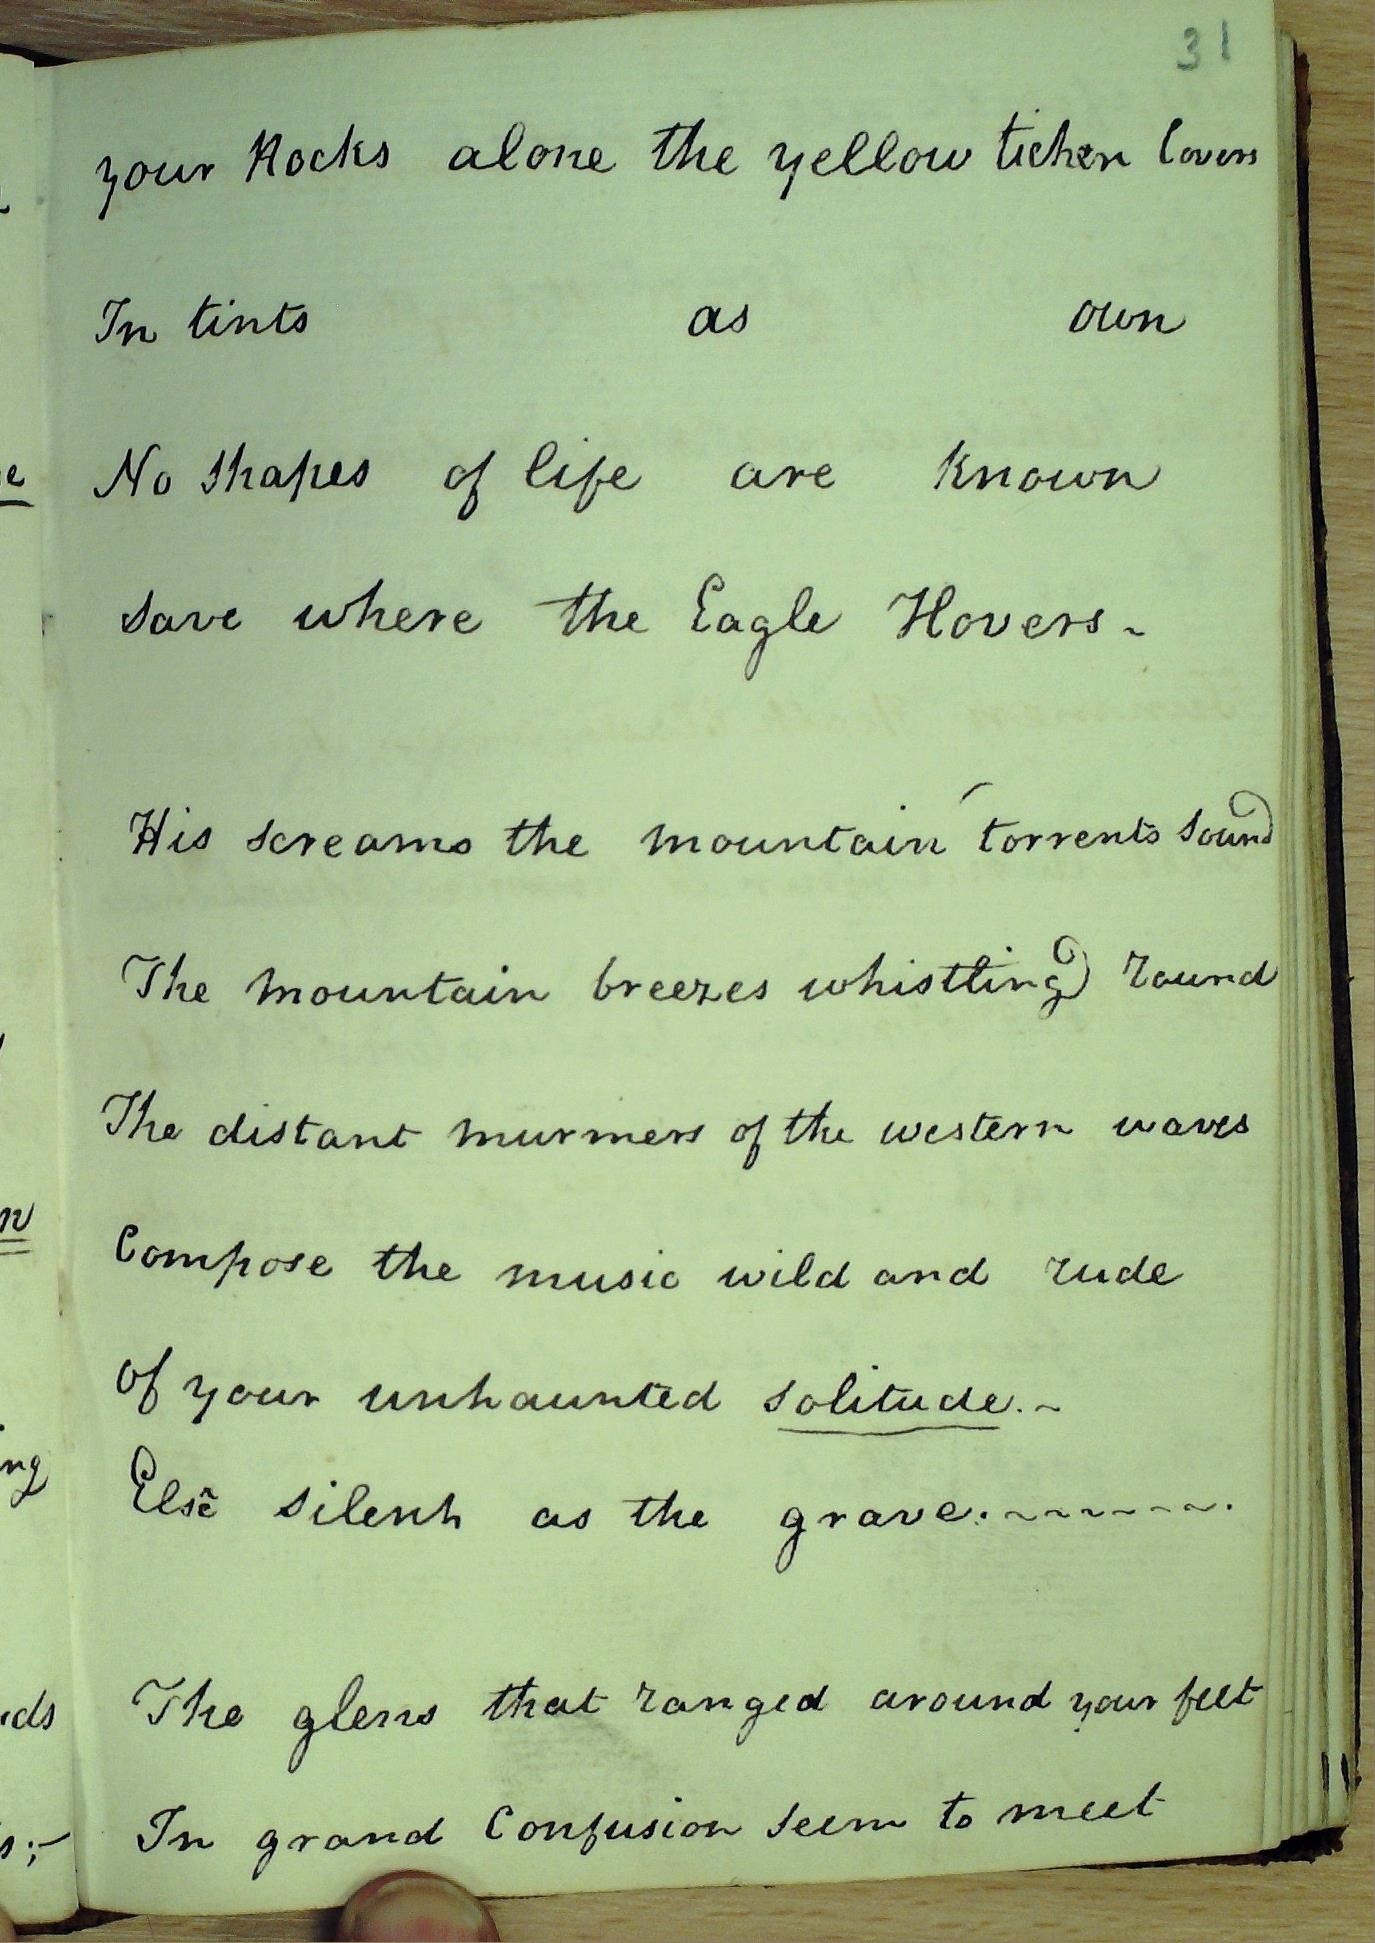 31
your Rocks alone the yellow lichen Covers
In tints as own
No shapes of life are known
save where the Eagle Hovers. ~
His screams the mountain torrents sound
The mountain breezes whistling round
The distant murmers of the western waves
Compose the music wild and rude
of your unhaunted solitude. ~
Else silent as the grave. ~~~~~~.
The glens that ranged around your feet
In grand Confusion seem to meet